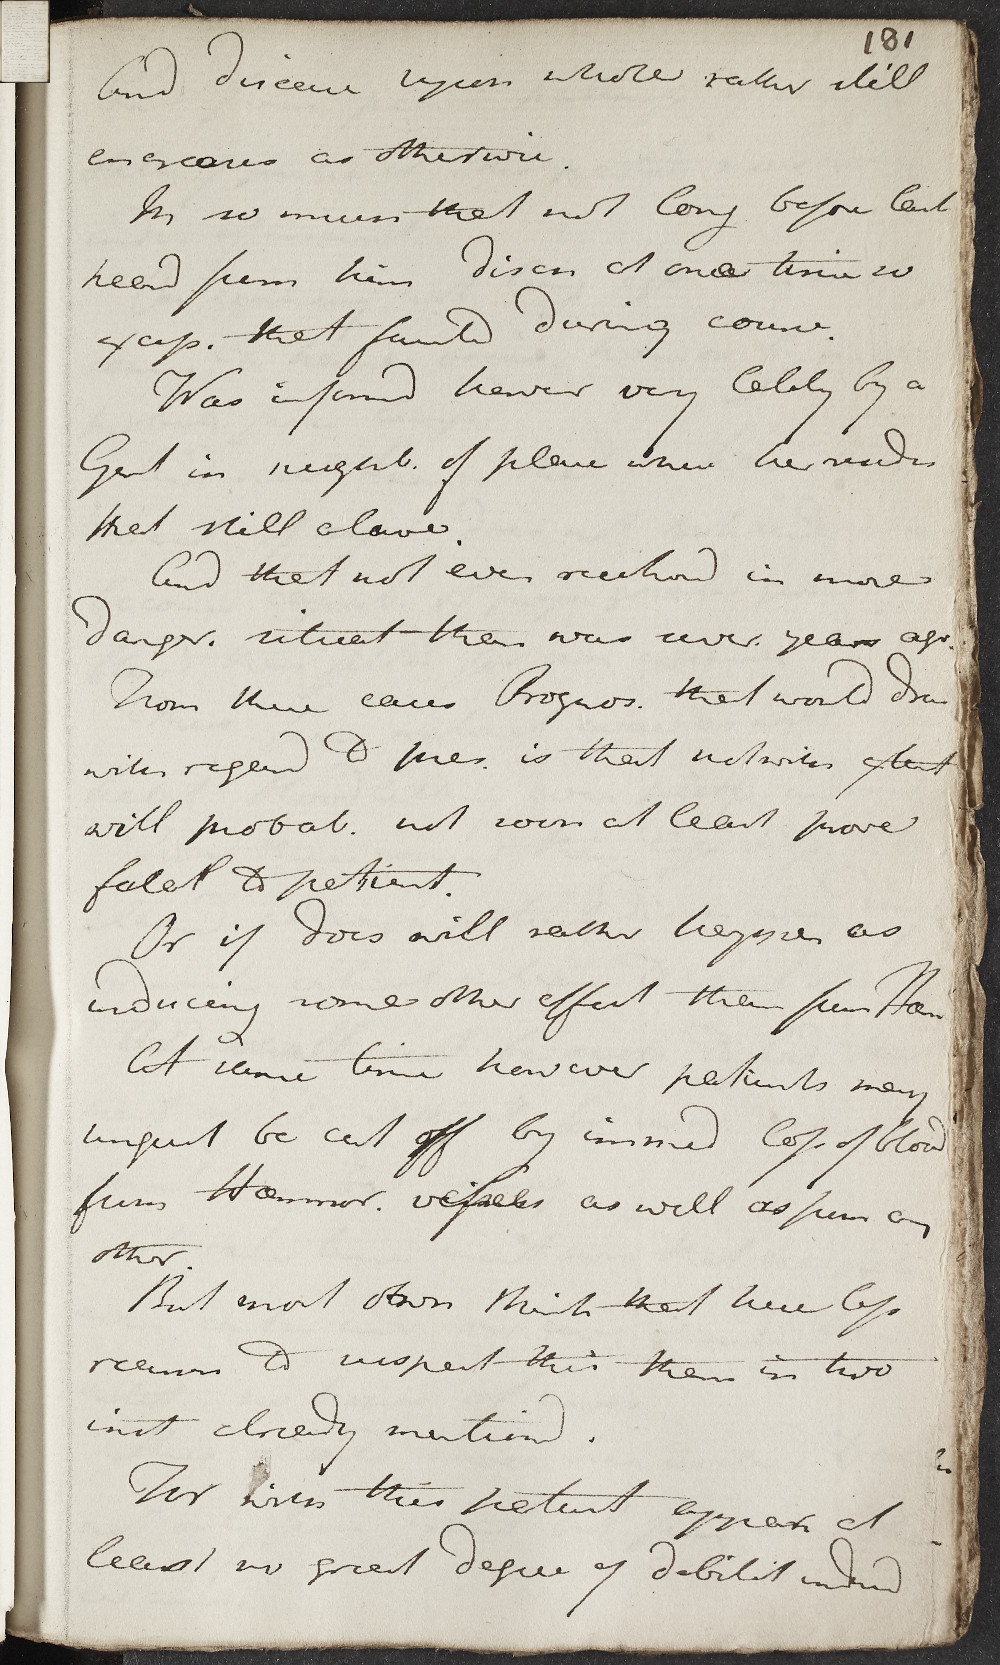 181
And disease upon whole rather still
encreases as otherwise.
In so much that not long before last
heard from him disch at one time so
exces. that fainted during course.
Was informd however very lately by a
Gent in neighb. of place where he resides
that still alive.
And that not even reckond in more
danger. situat than was sever. years ago.
From these cases Prognos. that would draw
with regard to pres. is that notwith extent
will probab. not soon at least prove
fatall to patient.
Or if does will rather happen as
inducing some other effect than from Hæm
At same time however patients may
unquest be cut off by immed Loss of blood
from Hæmorr. vessels as well as from any
other.
But most own think that here less
reason to suspect this than in two
inst already mentiond.
For with this patient appears at
least no great degree of debilit indeed